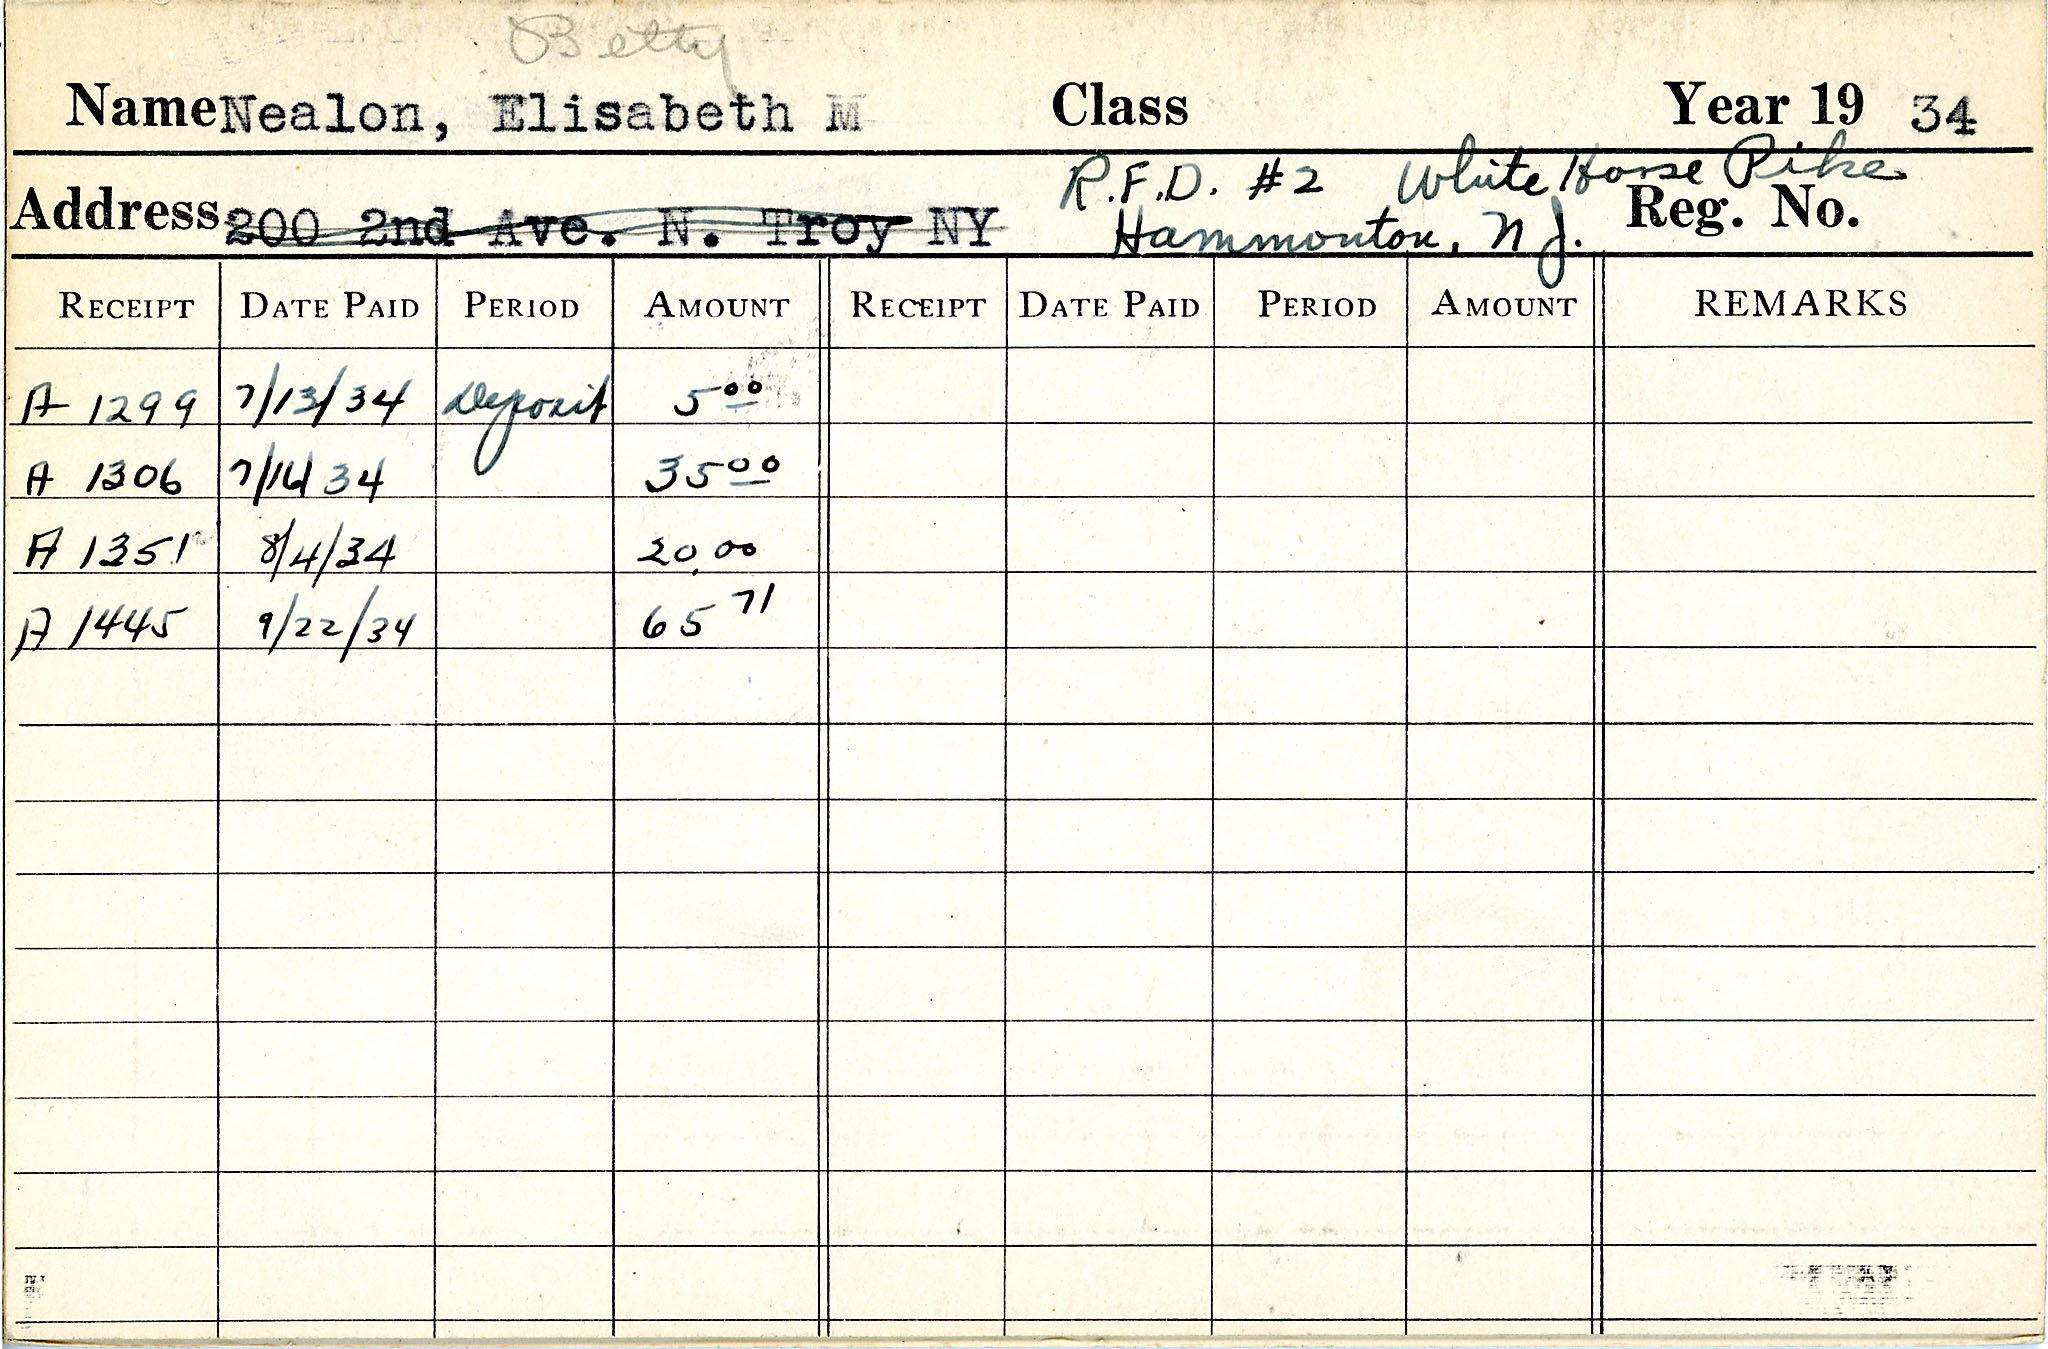 Betty
Name Nealon, Elisabeth M Class Year 19 34
R.F.D. #2 White Horse Pike
Address 200 2nd Ave. N. Troy NY Hammonton, NJ. Reg. No.
RECEIPT DATE PAID PERIOD AMOUNT RECEIPT DATE PAID PERIOD AMOUNT REMARKS
A 1299 7/13/34 Deposit 5 00
A 1306 7/16/34 35 00
A 1351 8/4/34 20.00
A 1445 9/22/34 65 71